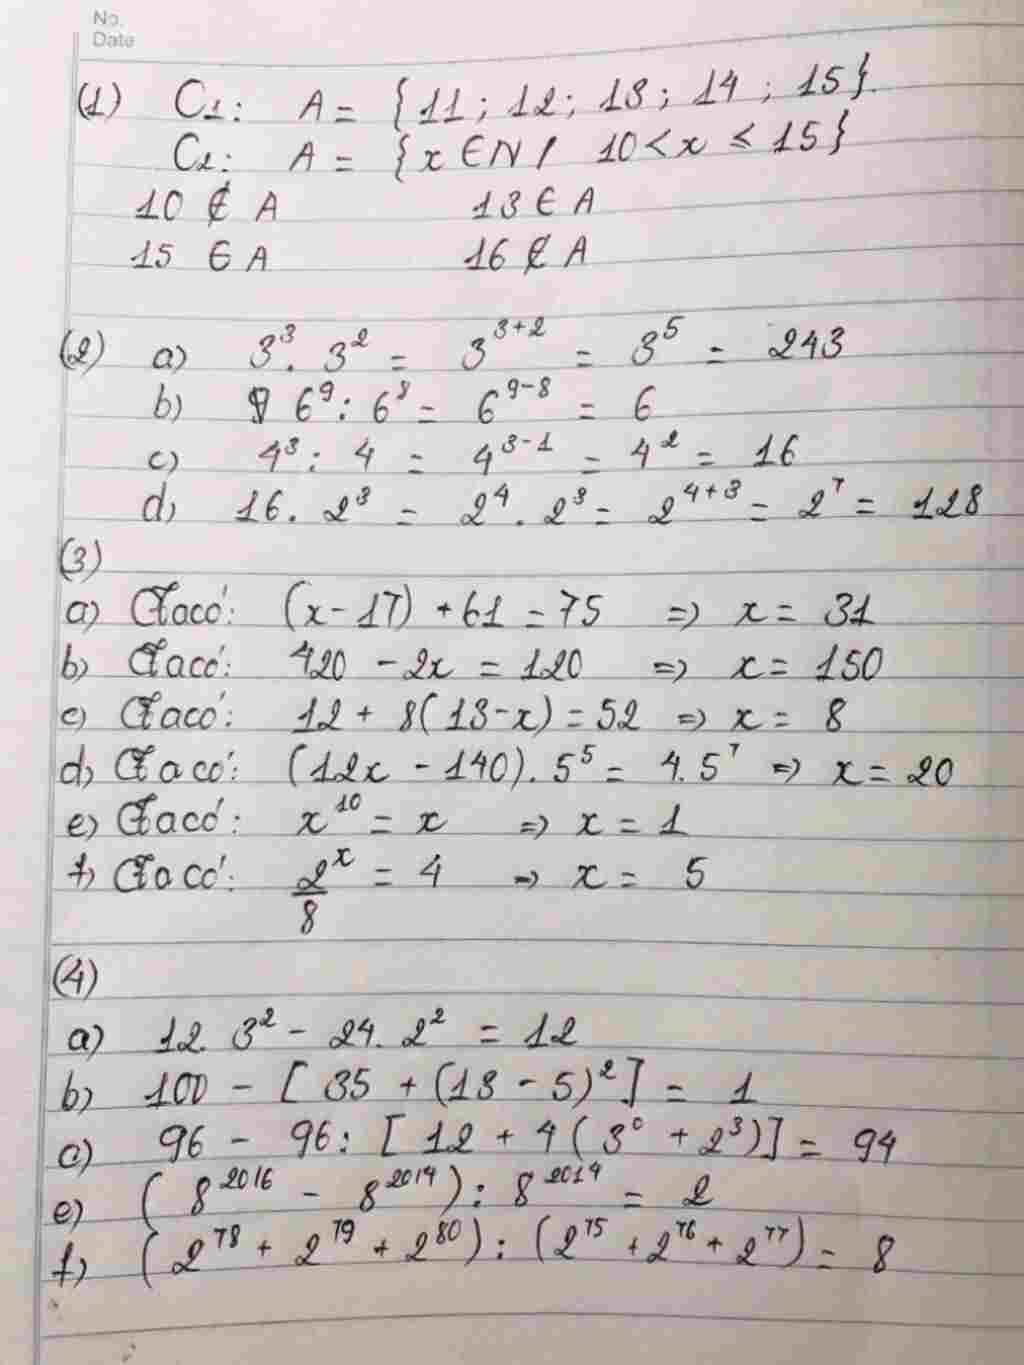 No.
Date
(1) C1: A = {11; 12; 13; 14; 15}.
C2: A = {x ∈ N / 10 < x ≤ 15}
10 ∉ A 13 ∈ A
15 ∈ A 16 ∉ A
(2) a) 3³ . 3² = 3³⁺² = 3⁵ = 243
b) 6⁹ : 6⁸ = 6⁹⁻⁸ = 6
c) 4³ : 4 = 4³⁻¹ = 4² = 16
d) 16 . 2³ = 2⁴ . 2³ = 2⁴⁺³ = 2⁷ = 128
(3)
a) Ta có: (x - 17) + 61 = 75 => x = 31
b) Ta có: 420 - 2x = 120 => x = 150
c) Ta có: 12 + 8(13 - x) = 52 => x = 8
d) Ta có: (12x - 140) . 5⁵ = 4 . 5⁷ => x = 20
e) Ta có: x¹⁰ = x => x = 1
f) Ta có: 2ˣ/8 = 4 => x = 5
(4)
a) 12 . 3² - 24 . 2² = 12
b) 100 - [35 + (13 - 5)²] = 1
c) 96 - 96 : [12 + 4(3⁰ + 2³)] = 94
e) (8²⁰¹⁶ - 8²⁰¹⁴) : 8²⁰¹⁴ = 2
f) (2⁷⁸ + 2⁷⁹ + 2⁸⁰) : (2⁷⁵ + 2⁷⁶ + 2⁷⁷) = 8